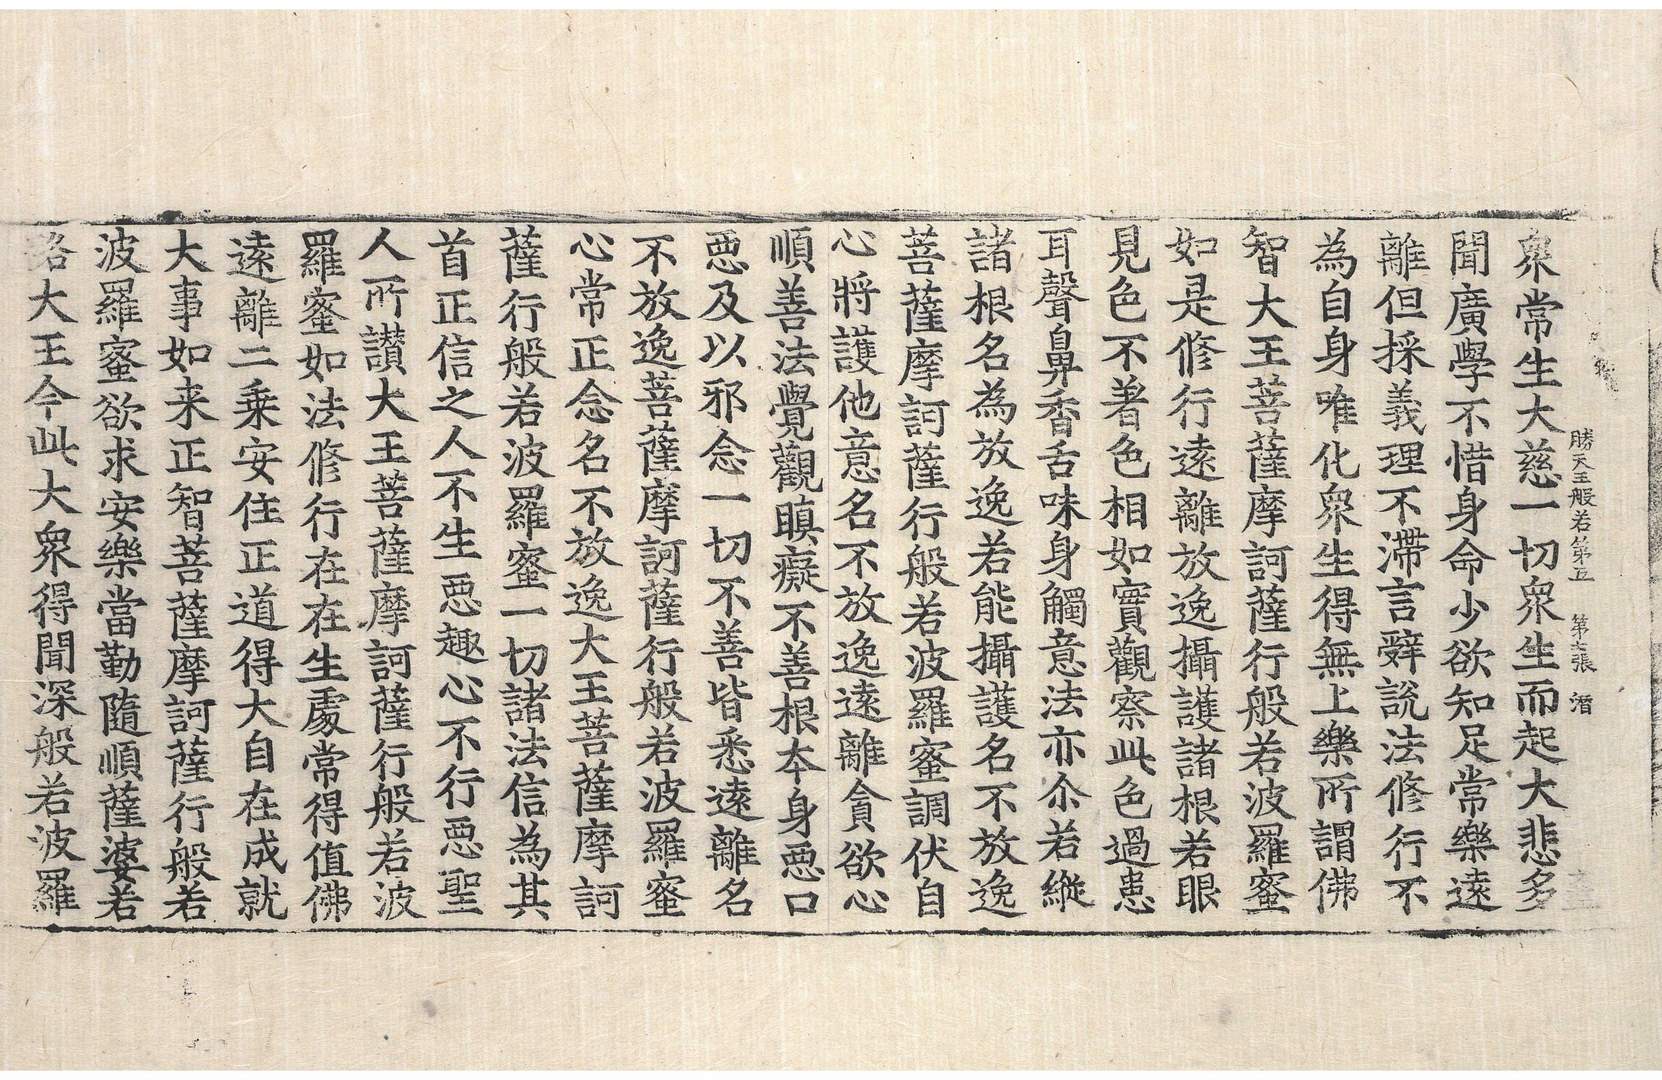 勝天王般若第五　第七張　潛
衆常生大慈一切衆生而起大悲多
聞廣學不惜身命少欲知足常樂遠
離但採義理不滯言辭說法修行不
為自身唯化衆生得無上樂所謂佛
智大王菩薩摩訶薩行般若波羅蜜
如是修行遠離放逸攝護諸根若眼
見色不著色相如實觀察此色過患
耳聲鼻香舌味身觸意法亦尒若縱
諸根名為放逸若能攝護名不放逸
菩薩摩訶薩行般若波羅蜜調伏自
心將護他意名不放逸遠離貪欲心
順善法覺觀瞋癡不善根本身惡口
惡及以邪念一切不善皆悉遠離名
不放逸菩薩摩訶薩行般若波羅蜜
心常正念名不放逸大王菩薩摩訶
薩行般若波羅蜜一切諸法信為其
首正信之人不生惡趣心不行惡聖
人所讚大王菩薩摩訶薩行般若波
羅蜜如法修行在在生處常得值佛
遠離二乗安住正道得大自在成就
大事如来正智菩薩摩訶薩行般若
波羅蜜欲求安樂當勤隨順薩婆若
路大王今此大衆得聞深般若波羅